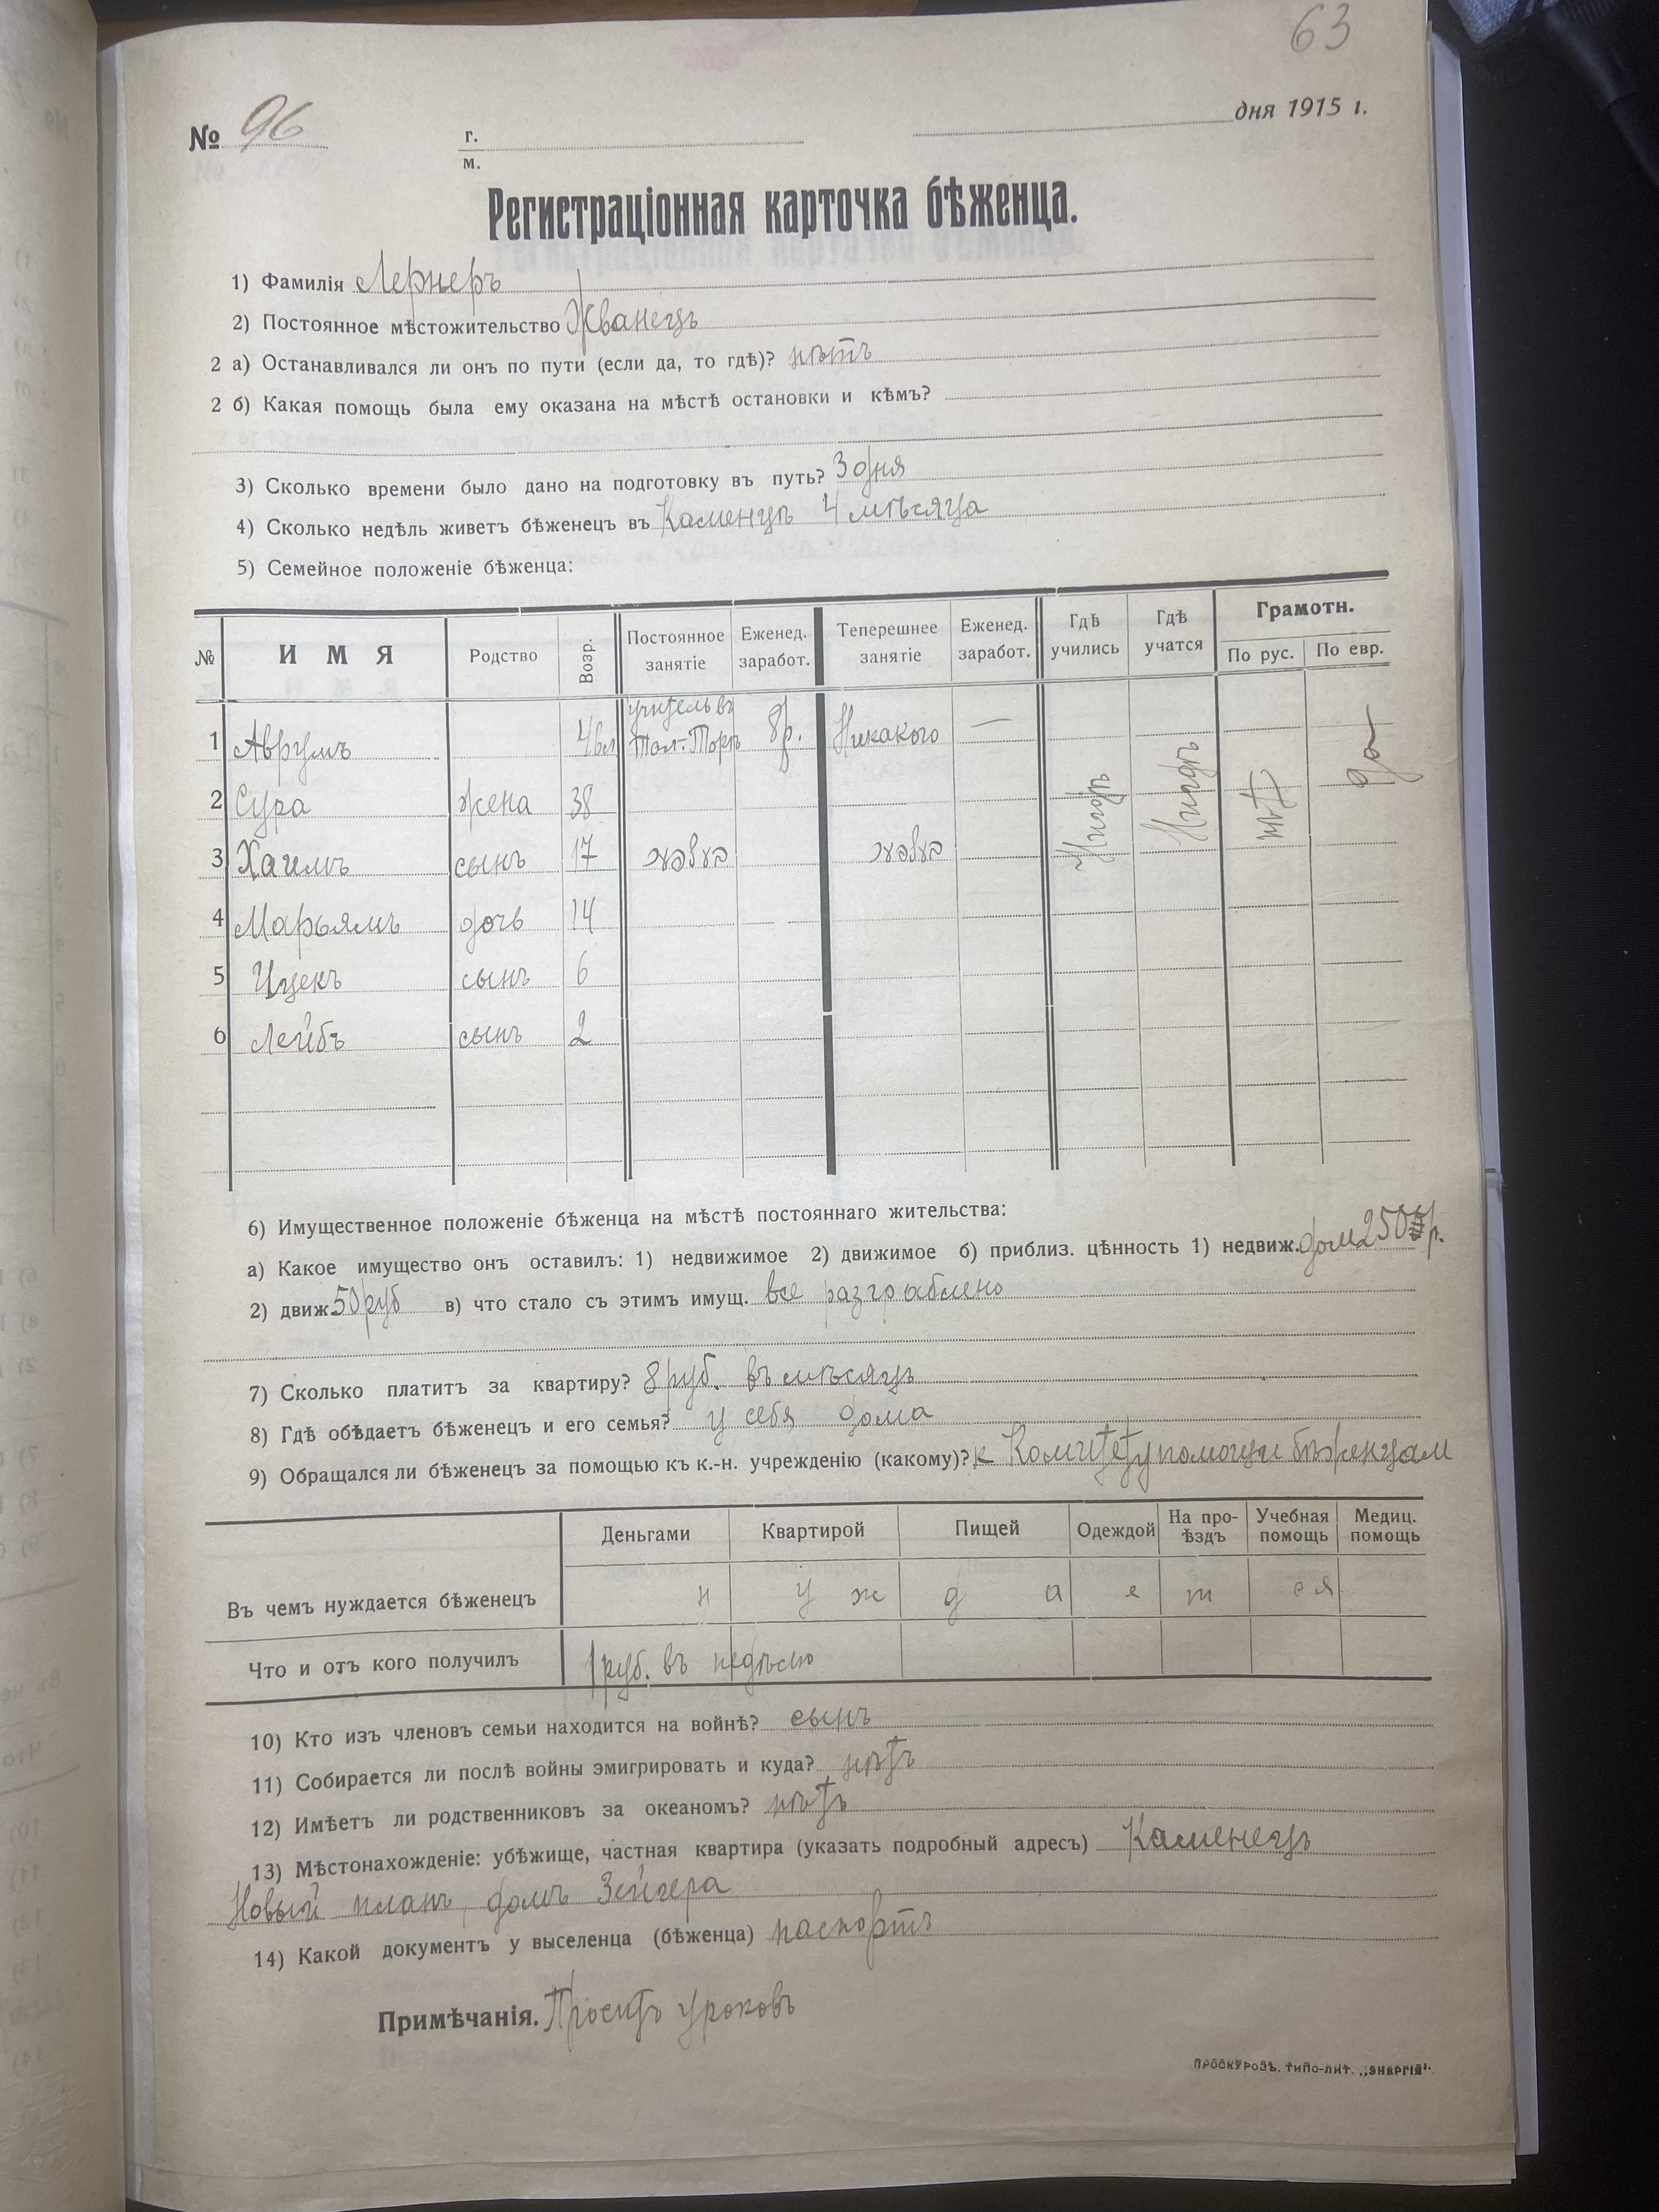 63
№ 96 г. дня 1915 г.
м.
Регистраціонная карточка бѣженца.
1) Фамилія Лернеръ
2) Постоянное мѣстожительство Жванецъ
2 а) Останавливался ли онъ по пути (если да, то гдѣ)? нѣтъ
2 б) Какая помощь была ему оказана на мѣстѣ остановки и кѣмъ?
3) Сколько времени было дано на подготовку въ путь? 3 дня
4) Сколько недѣль живетъ бѣженецъ въ Каменцѣ 4 мѣсяца
5) Семейное положеніе бѣженца:
№ ИМЯ Родство Возр. Постоянное занятіе Еженед. заработ. Теперешнее занятіе Еженед. заработ. Гдѣ учились Гдѣ учатся Грамотн. По рус. По евр.
1 Аврумъ учитель въ Тал.-Торѣ 8 р. Никакого — Нигдѣ Нигдѣ нѣт да
2 Сура жена 38
3 Хаимъ сынъ 17
4 Марьямъ дочь 14
5 Ицекъ сынъ 6
6 Лейбъ сынъ 2
6) Имущественное положеніе бѣженца на мѣстѣ постояннаго жительства:
а) Какое имущество онъ оставилъ: 1) недвижимое 2) движимое б) приблиз. цѣнность 1) недвиж. дом 250 р.
2) движ. 50 руб в) что стало съ этимъ имущ. все разграблено
7) Сколько платитъ за квартиру? 8 руб. въ мѣсяцъ
8) Гдѣ обѣдаетъ бѣженецъ и его семья? у себя дома
9) Обращался ли бѣженецъ за помощью къ к.-н. учрежденію (какому)? к Комитету помощи бѣженцам
Деньгами Квартирой Пищей Одеждой На про-ѣздъ Учебная помощь Медиц. помощь
Въ чемъ нуждается бѣженецъ н у ж д а е т ся
Что и отъ кого получилъ 1 руб. въ недѣлю
10) Кто изъ членовъ семьи находится на войнѣ? сынъ
11) Собирается ли послѣ войны эмигрировать и куда? нѣтъ
12) Имѣетъ ли родственниковъ за океаномъ? нѣтъ
13) Мѣстонахожденіе: убѣжище, частная квартира (указать подробный адресъ) Каменецъ
Новый планъ, домъ Зейгера
14) Какой документъ у выселенца (бѣженца) паспортъ
Примѣчанія. Проситъ уроковъ
ПРОСКУРОВЪ. ТИПО-ЛИТ. „ЭНЕРГІЯ".